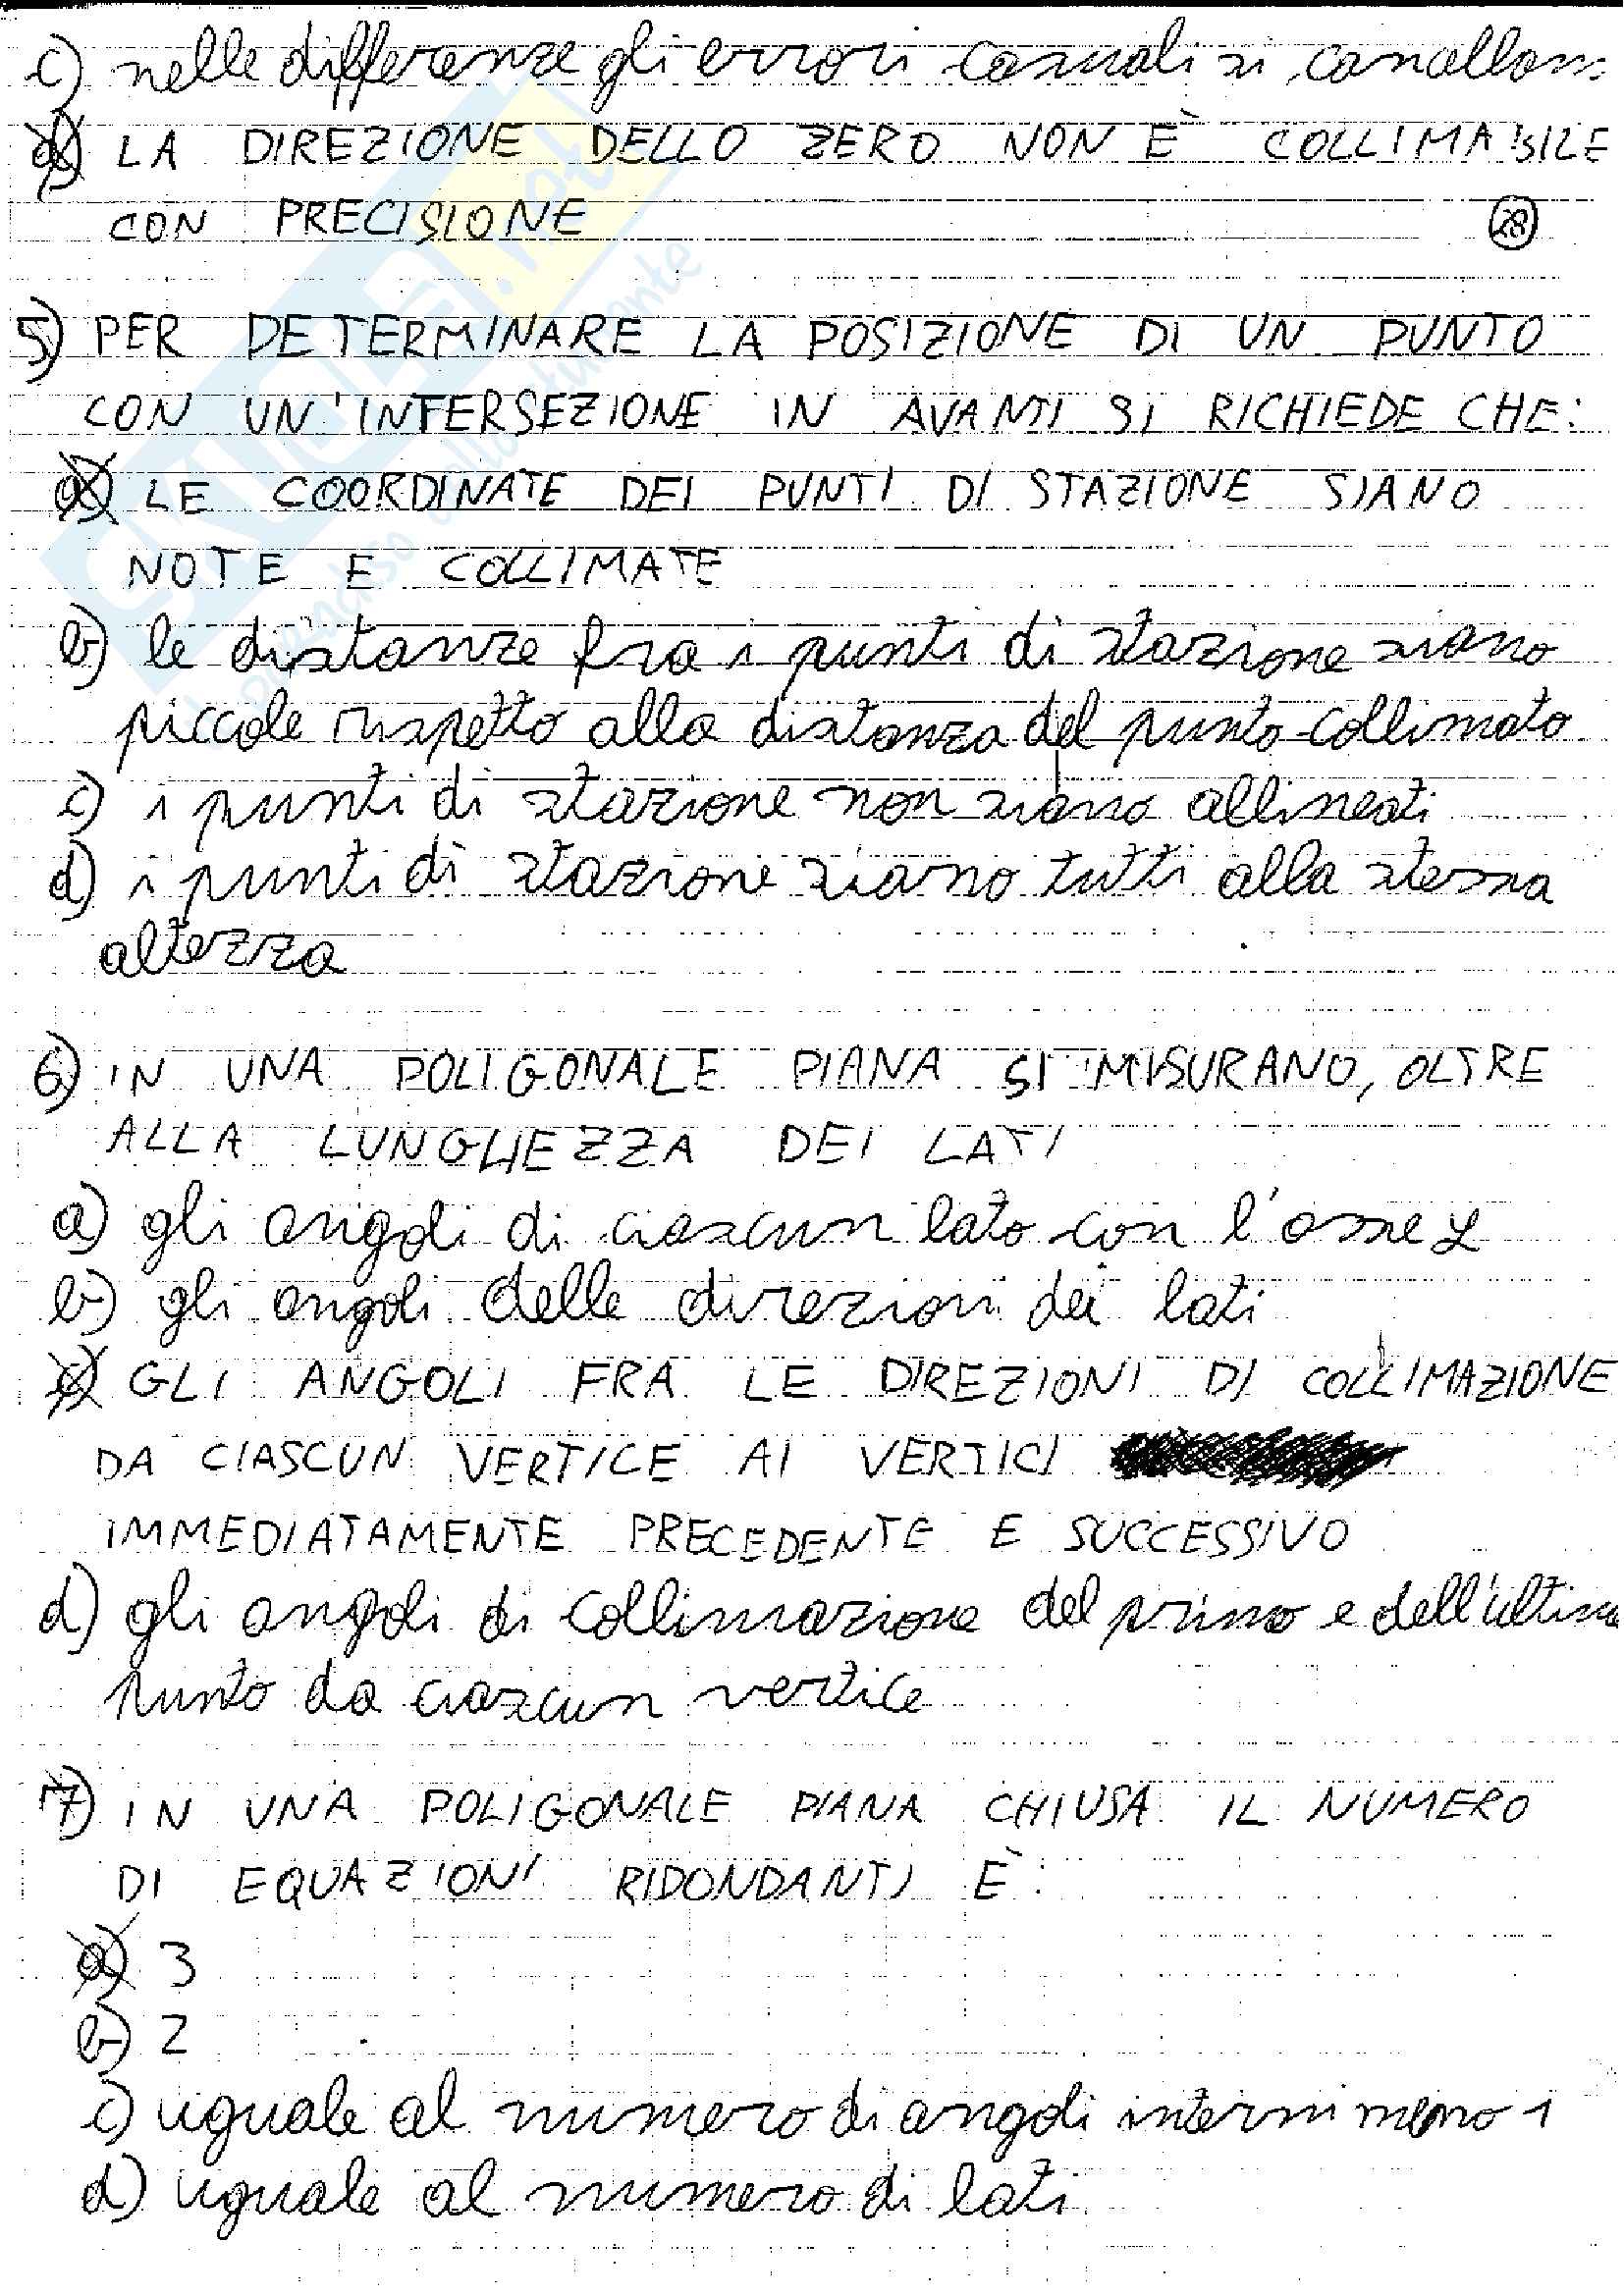 c) nelle differenze gli errori casuali si cancellano
d) LA DIREZIONE DELLO ZERO NON È COLLIMABILE
CON PRECISIONE
28
5) PER DETERMINARE LA POSIZIONE DI UN PUNTO
CON UN'INTERSEZIONE IN AVANTI SI RICHIEDE CHE:
a) LE COORDINATE DEI PUNTI DI STAZIONE SIANO
NOTE E COLLIMATE
b) le distanze fra i punti di stazione siano
piccole rispetto alla distanza del punto collimato
c) i punti di stazione non siano allineati
d) i punti di stazione siano tutti alla stessa
altezza
6) IN UNA POLIGONALE PIANA SI MISURANO, OLTRE
ALLA LUNGHEZZA DEI LATI
a) gli angoli di ciascun lato con l'asse y
b) gli angoli delle direzioni dei lati
c) GLI ANGOLI FRA LE DIREZIONI DI COLLIMAZIONE
DA CIASCUN VERTICE AI VERTICI
IMMEDIATAMENTE PRECEDENTE E SUCCESSIVO
d) gli angoli di collimazione del primo e dell'ultimo
punto da ciascun vertice
7) IN UNA POLIGONALE PIANA CHIUSA IL NUMERO
DI EQUAZIONI RIDONDANTI È:
a) 3
b) 2
c) uguale al numero di angoli interni meno 1
d) uguale al numero di lati